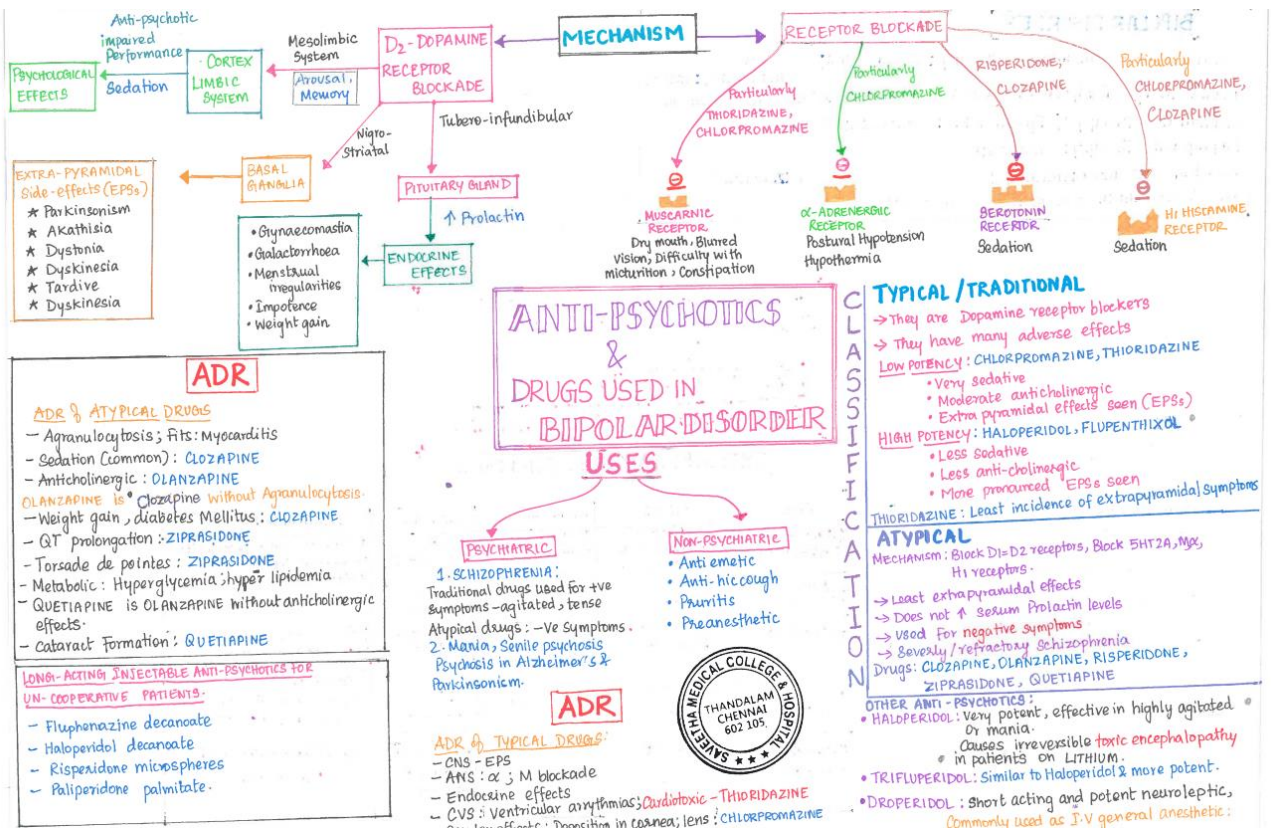 Anti-psychotic
impaired
Performance
Sedation
PSYCHOLOGICAL
EFFECTS
CORTEX
LIMBIC
SYSTEM
Mesolimbic
System
Arousal,
Memory
D2-DOPAMINE
RECEPTOR
BLOCKADE
MECHANISM
RECEPTOR BLOCKADE
Nigro-
Striatal
Tubero-infundibular
BASAL
GANGLIA
EXTRA-PYRAMIDAL
Side-effects (EPSs)
★ Parkinsonism
★ Akathisia
★ Dystonia
★ Dyskinesia
★ Tardive
★ Dyskinesia
PITUITARY GLAND
↑ Prolactin
ENDOCRINE
EFFECTS
• Gynaecomastia
• Galactorrhoea
• Menstrual
irregularities
• Impotence
• Weight gain
Particularly
THIORIDAZINE,
CHLORPROMAZINE
Particularly
CHLORPROMAZINE
RISPERIDONE,
CLOZAPINE
Particularly
CHLORPROMAZINE,
CLOZAPINE
MUSCARNIC
RECEPTOR
Dry mouth, Blurred
vision, Difficulty with
micturition, Constipation
α-ADRENERGIC
RECEPTOR
Postural Hypotension
Hypothermia
SEROTONIN
RECEPTOR
Sedation
H1 HISTAMINE
RECEPTOR
Sedation
ANTI-PSYCHOTICS
&
DRUGS USED IN
BIPOLAR DISORDER
CLASSIFICATION
TYPICAL/TRADITIONAL
→ They are Dopamine receptor blockers
→ They have many adverse effects
LOW POTENCY: CHLORPROMAZINE, THIORIDAZINE
• Very sedative
• Moderate anticholinergic
• Extra pyramidal effects seen (EPSs)
HIGH POTENCY: HALOPERIDOL, FLUPENTHIXOL
• Less sedative
• Less anti-cholinergic
• More pronounced EPSs seen
THIORIDAZINE: Least incidence of extrapyramidal symptoms
ATYPICAL
MECHANISM: Block D1=D2 receptors, Block 5HT2A, Mα,
H1 receptors.
→ Least extrapyramidal effects
→ Does not ↑ serum Prolactin levels
→ Used for negative symptoms
→ Severly/refractory Schizophrenia
Drugs: CLOZAPINE, OLANZAPINE, RISPERIDONE,
ZIPRASIDONE, QUETIAPINE
OTHER ANTI-PSYCHOTICS:
• HALOPERIDOL: Very potent, effective in highly agitated
or mania.
Causes irreversible toxic encephalopathy
in patients on LITHIUM.
• TRIFLUPERIDOL: Similar to Haloperidol & more potent.
• DROPERIDOL: Short acting and potent neuroleptic,
Commonly used as I.V general anesthetic:
ADR
ADR of ATYPICAL DRUGS
- Agranulocytosis; Fits: Myocarditis
- Sedation (common): CLOZAPINE
- Anticholinergic: OLANZAPINE
OLANZAPINE is Clozapine without Agranulocytosis.
- Weight gain, diabetes Mellitus: CLOZAPINE
- QT prolongation: ZIPRASIDONE
- Torsade de pointes: ZIPRASIDONE
- Metabolic: Hyperglycemia; hyper lipidemia
- QUETIAPINE is OLANZAPINE without anticholinergic
effects.
- Cataract Formation: QUETIAPINE
LONG-ACTING INJECTABLE ANTI-PSYCHOTICS FOR
UN-COOPERATIVE PATIENTS.
- Fluphenazine decanoate
- Haloperidol decanoate
- Risperidone microspheres
- Paliperidone palmitate.
USES
PSYCHIATRIC
1. SCHIZOPHRENIA:
Traditional drugs used for +ve
symptoms - agitated, tense
Atypical drugs: -ve Symptoms.
2. Mania, Senile psychosis
Psychosis in Alzheimer's &
Parkinsonism.
NON-PSYCHIATRIC
• Anti emetic
• Anti-hiccough
• Pruritis
• Preanesthetic
SAVEETHA MEDICAL COLLEGE & HOSPITAL
THANDALAM
CHENNAI
602 105.
ADR
ADR of TYPICAL DRUGS:
- CNS - EPS
- ANS: α; M blockade
- Endocrine effects
- CVS: Ventricular arrythmias; Cardiotoxic - THIORIDAZINE
effects: Deposition in cornea; lens: CHLORPROMAZINE